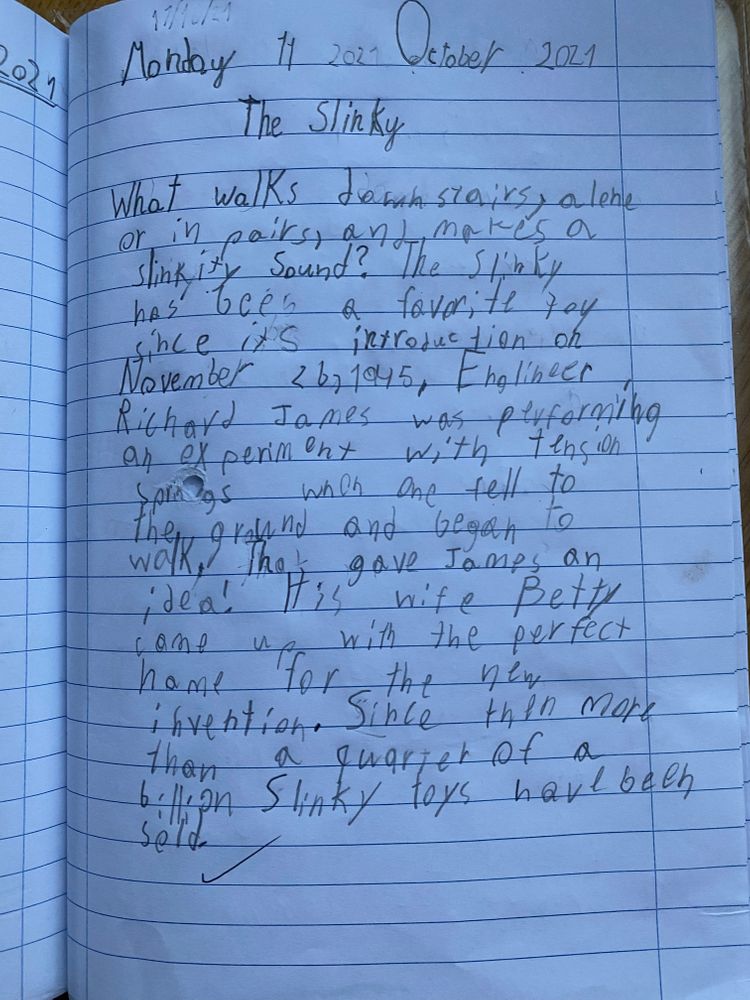 2021
11/10/21
Monday 11 2021 October 2021
The Slinky
What walks down stairs, alone
or in pairs, and makes a
slinkity sound? The Slinky
has been a favorite toy
since its introduction on
November 26, 1945, Englineer
Richard James was performing
an experiment with tension
springs when one fell to
the ground and began to
walk, That gave James an
idea! His wife Betty
came up with the perfect
name for the new
invention. Since then more
than a quarter of a
billion Slinky toys have been
sold.